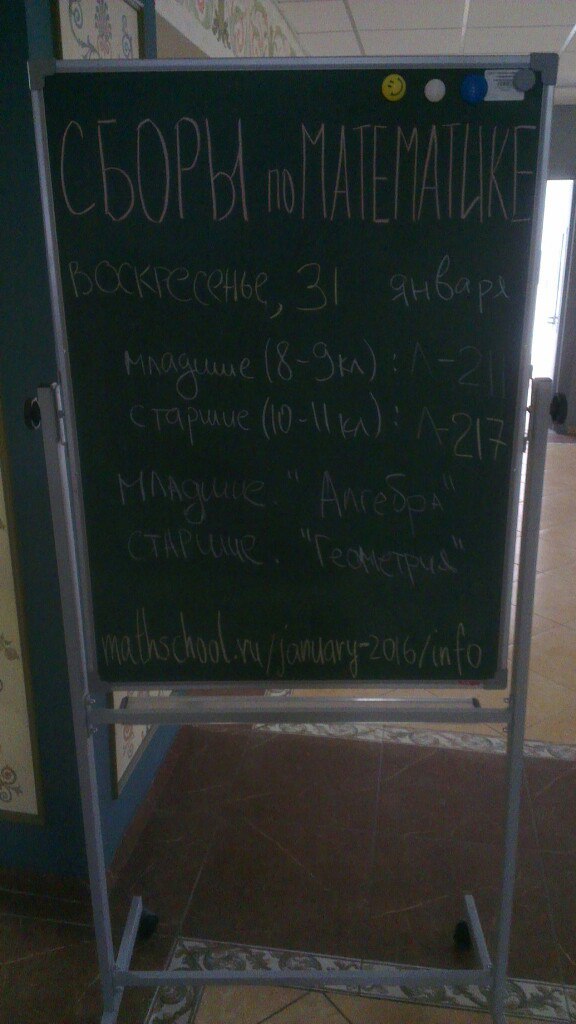 СБОРЫ по МАТЕМАТИКЕ
ВОСКРЕСЕНЬЕ, 31 января
младшие (8-9кл): Л-211
старшие (10-11кл): Л-217
младшие. "Алгебра"
старшие. "Геометрия"
mathschool.ru/january-2016/info